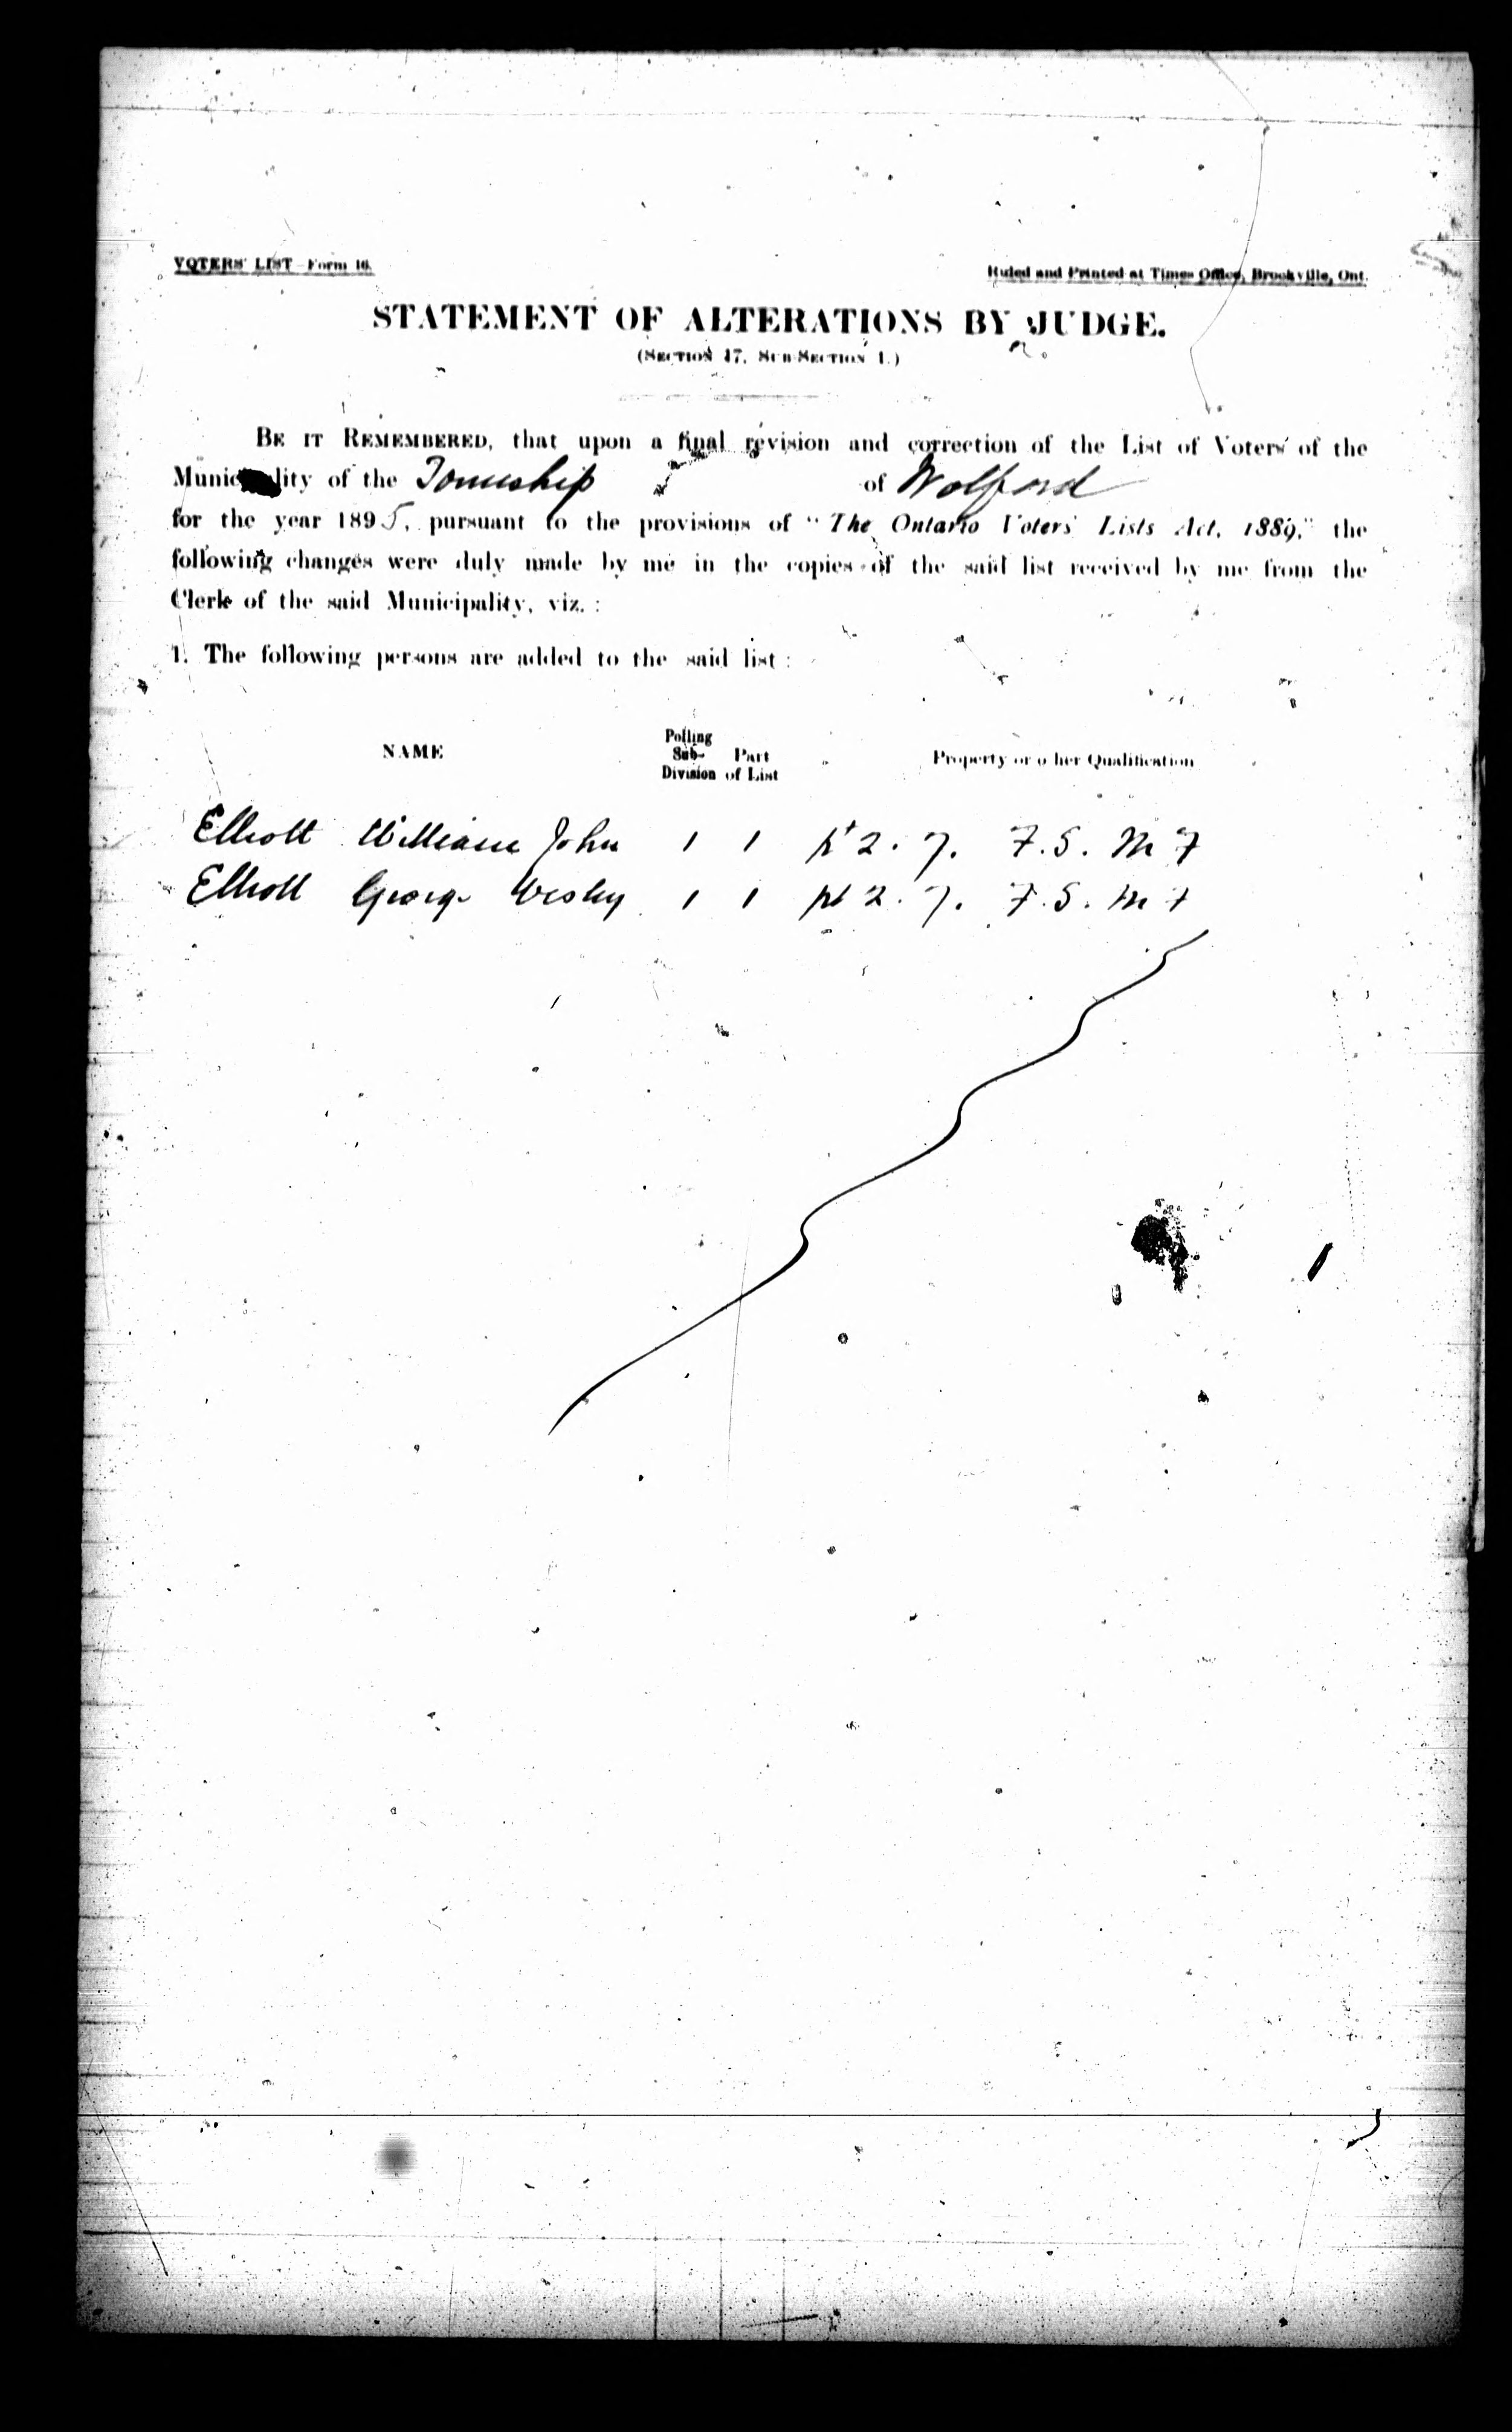 VOTERS' LIST—Form 16.
Ruled and Printed at Times Office, Brockville, Ont.
STATEMENT OF ALTERATIONS BY JUDGE.
(SECTION 17, SUB-SECTION 1.)
BE IT REMEMBERED, that upon a final revision and correction of the List of Voters' of the
Municipality of the Township of Wolford
for the year 1895, pursuant to the provisions of "The Ontario Voters' Lists Act, 1889," the
following changes were duly made by me in the copies of the said list received by me from the
Clerk of the said Municipality, viz. :
1. The following persons are added to the said list :
NAME Polling Sub-Division Part of List Property or other Qualification
Elliott William John 1 1 pt 2. 7. F. S. M F
Elliott George Wesley 1 1 pt 2. 7. F. S. M F